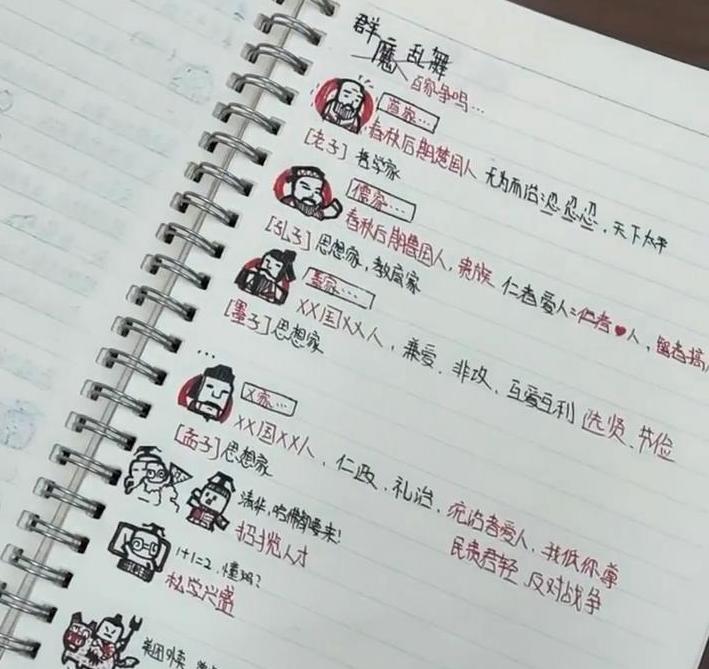 群魔乱舞
百家争鸣...
道家...
春秋后期楚国人 无为而治:忍忍忍,天下太平
[老子] 哲学家
儒家...
春秋后期鲁国人,贵族 仁者爱人:仁者♥人,
[孔子] 思想家,教育家
墨家...
XX国XX人,兼爱、非攻、互爱互利 选贤、节俭
[墨子] 思想家
...
X家...
XX国XX人,仁政、礼治,统治者爱人,我低你尊
[孟子] 思想家
民贵君轻 反对战争
清华,哈佛都要来!
招揽人才
1+1=2,懂吗?
私学兴盛
美团外卖